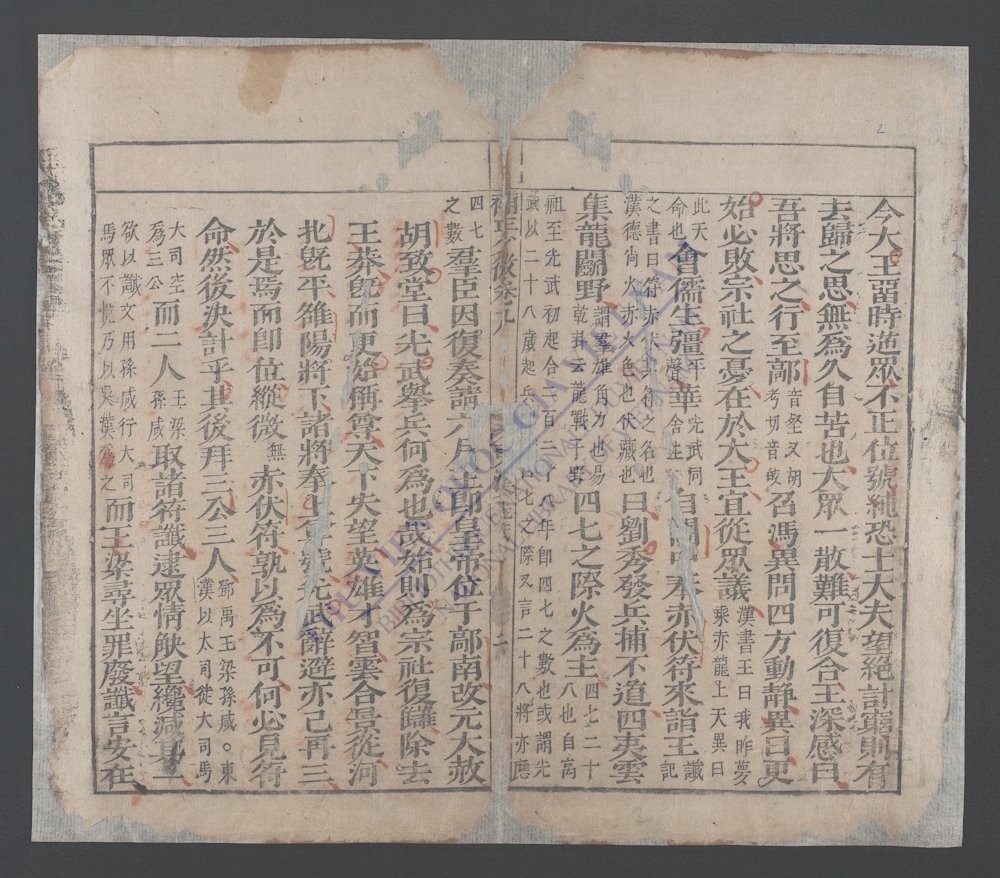 2
今大王畱時逆眾不正位號純恐士大夫望絕計窮則有
去歸之思無為久自苦也大眾一散難可復合王深感曰
吾將思之行至鄗音壑又胡考切音皓召馮異問四方動靜異曰更
始必敗宗社之憂在於大王宜從眾議漢書王曰我昨夢乘赤龍上天異曰
此天命也會儒生彊華自關中奉赤伏符來詣王讖記
之書曰符赤伏漢德尚火赤火色也伏藏也曰劉秀發兵捕不道四夷雲
集龍鬬野謂羣雄角力也易乾卦云龍戰于野四七之際火為主四七二十八也自高
祖至光武初起合二百二十八年即四七之數也或謂光武以二十八歲起兵七之際又言二十八將亦應
四七之數羣臣因復奏請六月王即皇帝位于鄗南改元大赦
胡致堂曰光武舉兵何為也哉始則為宗社復讎除去
王莽旣而更始稱尊天下失望英雄才智雲合景從河
北旣平雒陽將下諸將奉上尊號光武辭避亦已再三
於是焉而即位縱微無赤伏符孰以為不可何必見符
命然後決計乎其後拜三公三人鄧禹王梁孫咸。東漢以太司徒大司馬
大司空為三公而二人王梁孫咸取諸符讖逮眾情觖望纔減其一
欲以讖文用孫咸行大司馬眾不悅乃以吳漢為之而王梁尋坐罪廢讖言安在